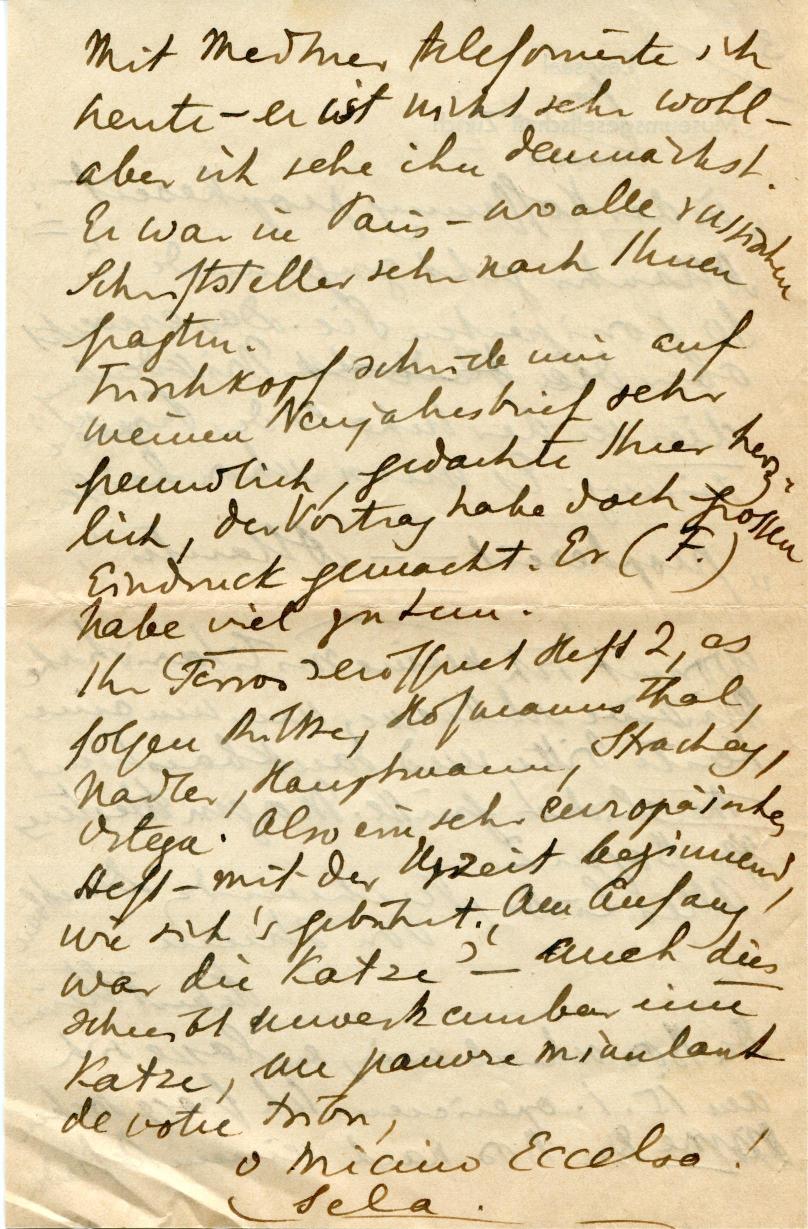 Mit Medtner telefonierte ich
heute – er ist nicht sehr wohl –
aber ich sehe ihn demnächst.
Er war in Paris – wo alle russischen
Schriftsteller sehr nach Ihnen
fragten.
Frischkopf schrieb mir auf
meinen Neujahrsbrief sehr
freundlich, gedachte Ihrer herz-
lich, der Vortrag habe doch grossen
Eindruck gemacht. Er (F.)
habe viel zu tun.
Ihr "Terror" eröffnet Heft 2, es
folgen Rilke, Hofmannsthal,
Nadler, Hauptmann, Strachey,
Ortega. Also ein sehr europäisches
Heft – mit der Urzeit beginnend,
wie sich's gebührt. "Am Anfang
war die Katze" – auch dies
schreibt unverkennbar eine
Katze, un pauvre miaulant
de votre tribu,
o Micino Eccelso!
Sela.